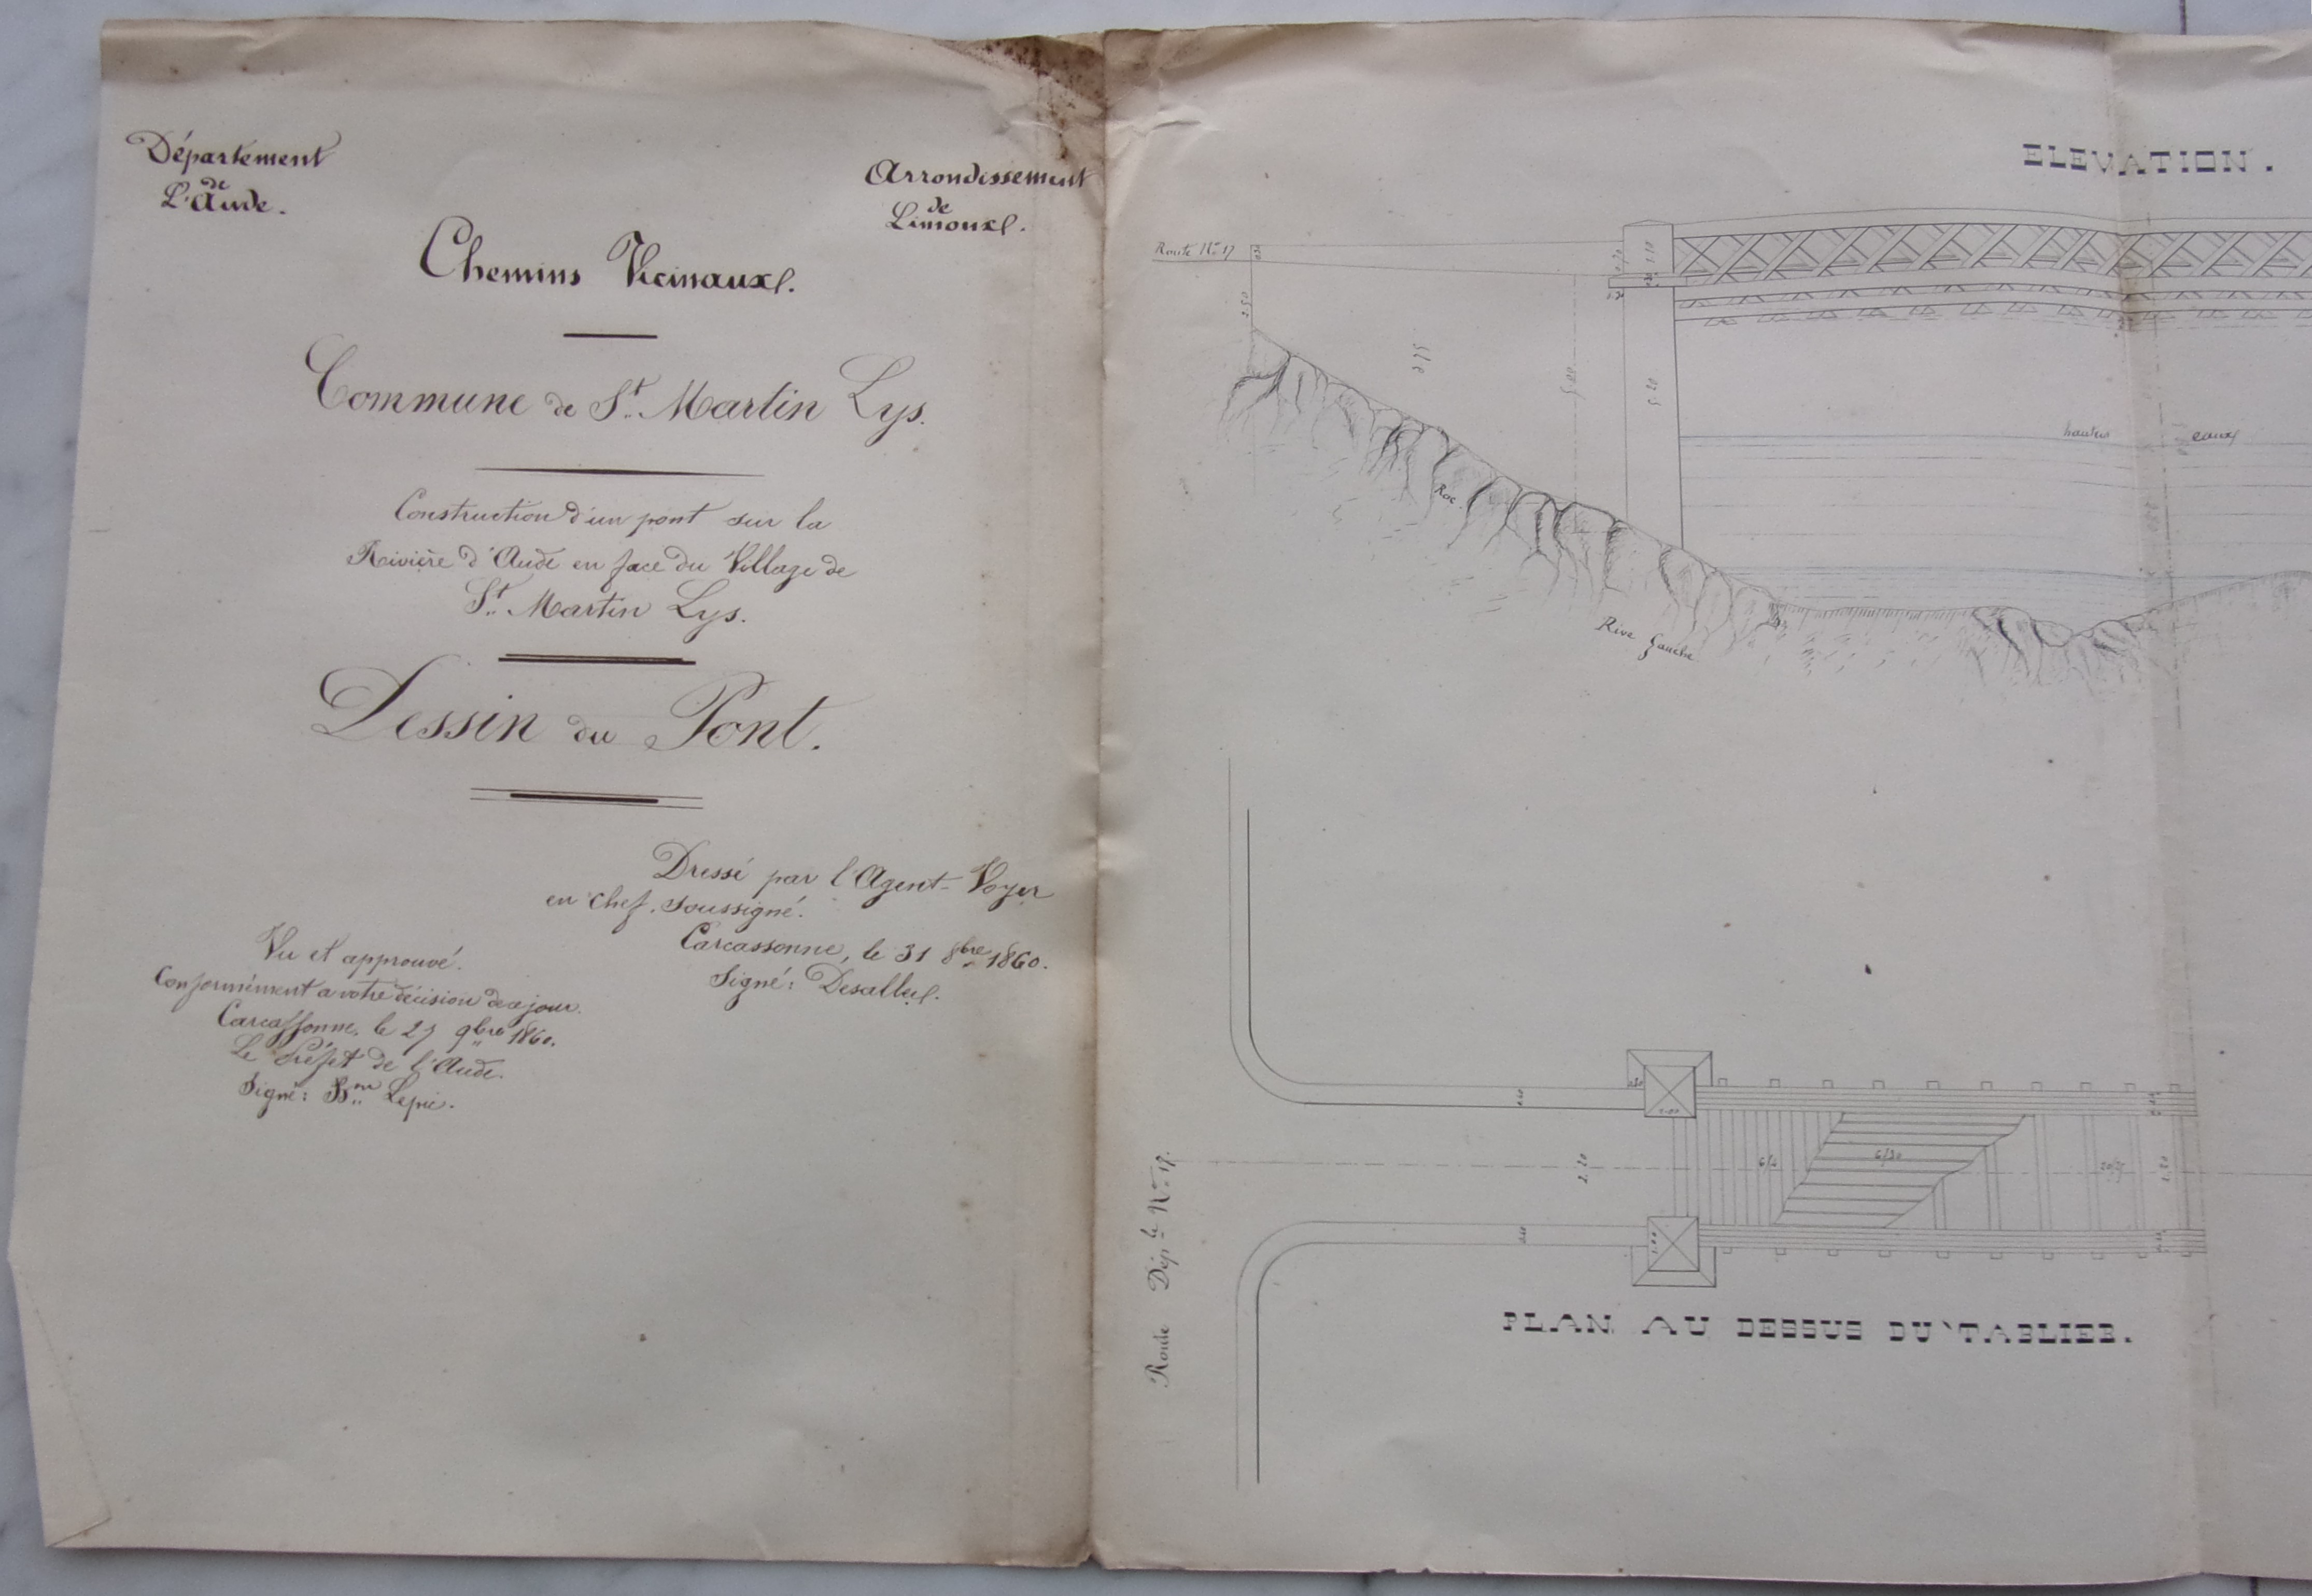 Département
de
L'Aude.
Arrondissement
de
Limoux.
Chemins Vicinaux.
Commune de St. Martin Lys.
Construction d'un pont sur la
Rivière d'Aude en face du Village de
St. Martin Lys.
Dessin du Pont.
Dressé par l'Agent-Voyer
en chef, soussigné.
Carcassonne, le 31 8bre 1860.
Signé:
Vu et approuvé.
Conformément a votre décision de ce jour.
Carcassonne, le 27 9bre 1860.
Le Préfet de l'Aude.
Signé: Bon Lepic.
ELEVATION.
Route No 17
2.50
1.10
5.20
hautes eaux
Roc.
Rive Gauche
Route Dép.le No 17.
2.20
1.00
6/30
PLAN AU DESSUS DU TABLIER.